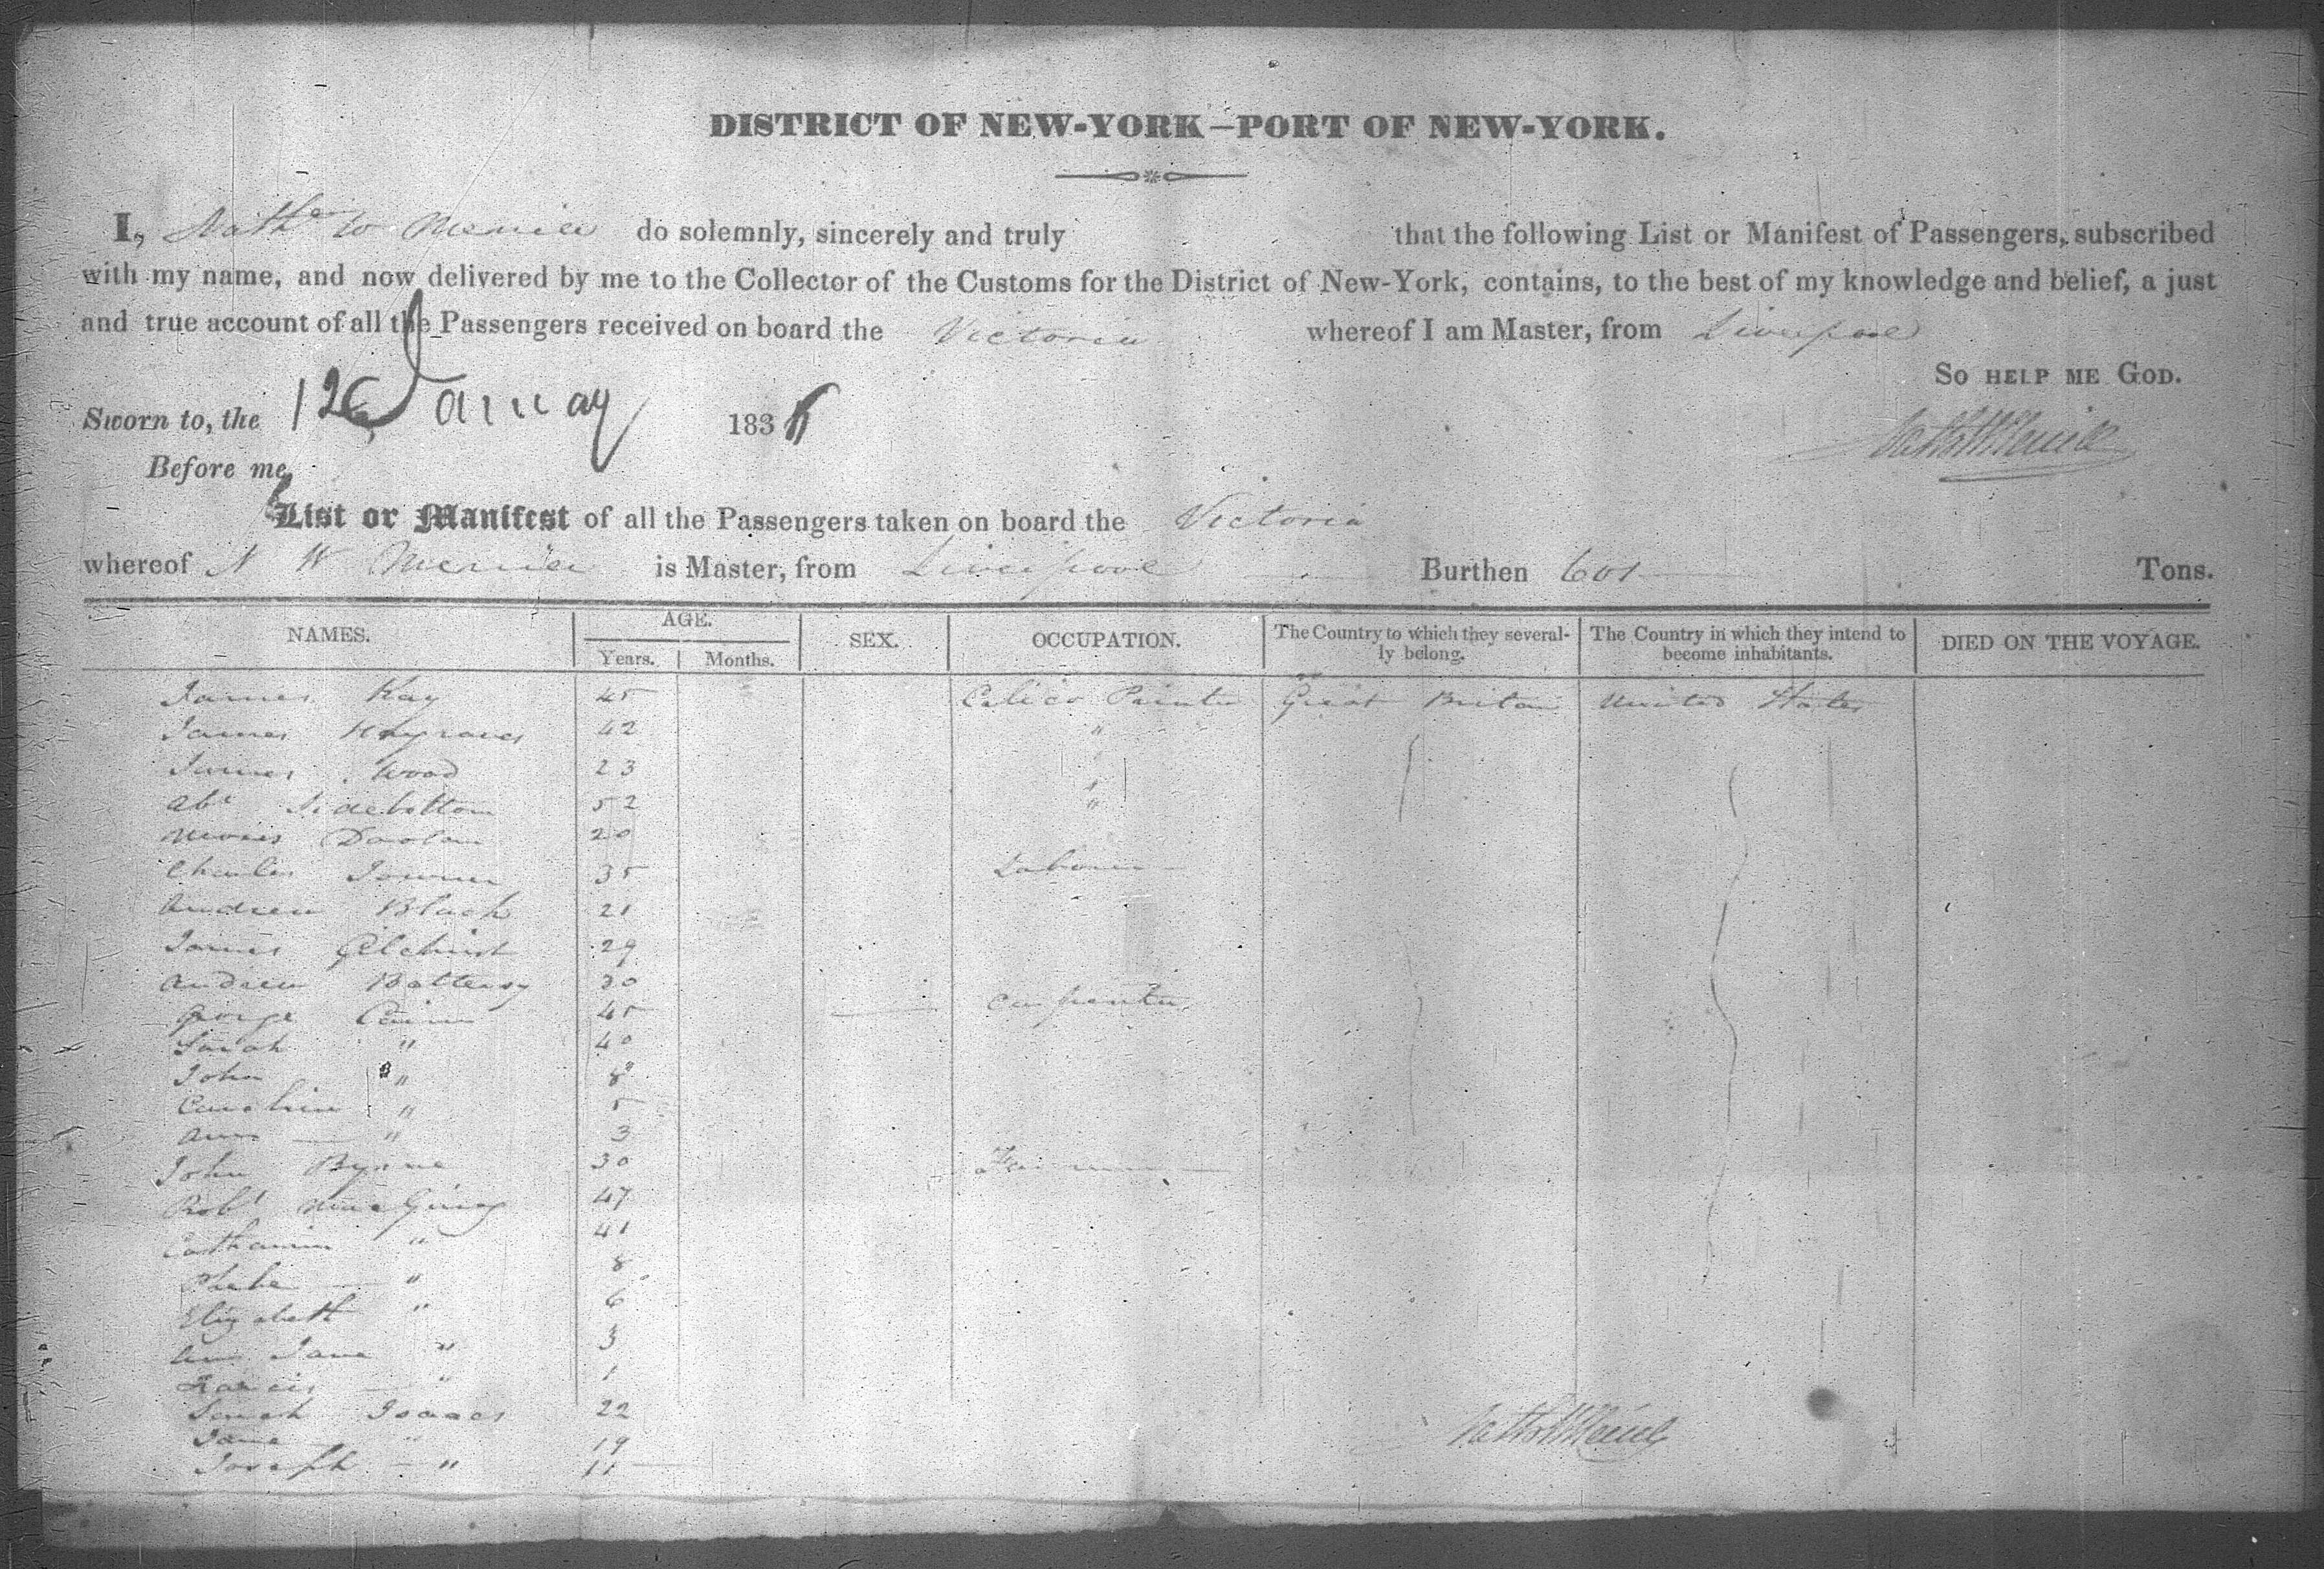 DISTRICT OF NEW-YORK—PORT OF NEW-YORK.
I, Nath W do solemnly, sincerely and truly that the following List or Manifest of Passengers, subscribed
with my name, and now delivered by me to the Collector of the Customs for the District of New-York, contains, to the best of my knowledge and belief, a just
and true account of all the Passengers received on board the Victoria whereof I am Master, from Liverpool
SO HELP ME GOD.
Sworn to, the 12 183
Before me,
List or Manifest of all the Passengers taken on board the Victoria
whereof N W is Master, from Liverpool Burthen 601 Tons.
NAMES. AGE. SEX. OCCUPATION. The Country to which they severally belong. The Country in which they intend to become inhabitants. DIED ON THE VOYAGE.
Years. Months.
James Kay 45 Calico Printer Great Britain United States
James 42 "
James Wood 23
Abr Sidebottom 52 "
Moses 20
Charles 35 Laborer
Andrew Black 21
James Gilchrist 29
Andrew Battersy 30
George 45 Carpenter
Sarah " 40
John " 8
Caroline " 5
Ann " 3
John Byrne 30
Robt 47
Catharine " 41
Phebe " 8
Elizabeth " 6
Ann Jane " 3
Francis " 1
Sarah Isaacs 22
Jane " 19
Joseph " 11